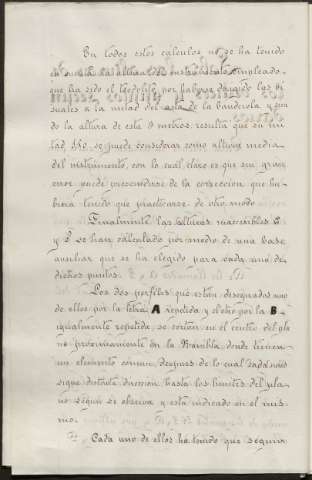 En todos estos cálculos no se ha tenido
en cuenta la altura del instrumento empleado,
que ha sido el teodolito por haberse dirigido las vi-
suales a la mitad del asta de la banderola y sien-
do la altura de este 3 metros, resulta que su mi-
tad, 1.50, se puede considerar como altura media
del instrumento, con lo cual claro es que sin grave
error puede prescindirse de la corrección que hu-
biera tenido que practicarse de otro modo
Finalmente las alturas inaccesibles
y se han calculado por medio de una base
auxiliar que se ha elegido para cada uno de
dichos puntos.
Los dos perfiles que están designados uno
de ellos por la letra A repetida y el otro por la B
igualmente repetida, se cortan en el centro del pla-
no próximamente en la Rambla, donde tienen
un elemento común, después de lo cual cada uno
sigue distinta dirección hasta los límites del pla-
no según se observa y está indicado en el mis-
mo.
Cada uno de ellos ha tenido que seguir